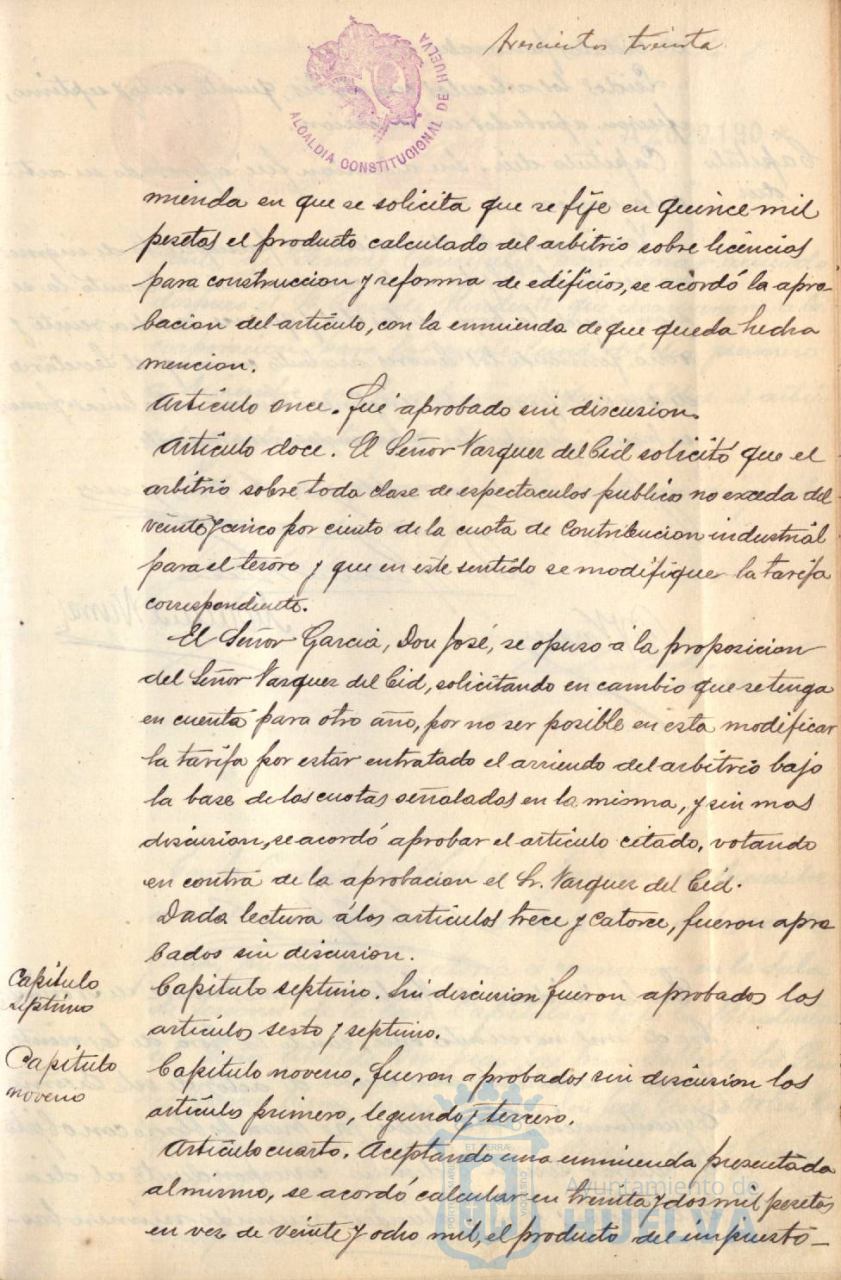 trescientos treinta
ALCALDIA CONSTITUCIONAL DE HUELVA
mienda en que se solicita que se fije en quince mil
pesetas el producto calculado del arbitrio sobre licencias
para construccion y reforma de edificios, se acordó la apro-
bacion del artículo, con la enmienda de que queda hecha
mencion.
Artículo once. Fué aprobado sin discusion.
Artículo doce. El Señor Vazquez del Cid solicitó que el
arbitrio sobre toda clase de espectaculos publicos no exceda del
veinte y cinco por ciento de la cuota de Contribucion industrial
para el tesoro y que en este sentido se modifique la tarifa
correspondiente.
El Señor Garcia, Don José, se opuso á la proposicion
del Señor Vazquez del Cid, solicitando en cambio que se tenga
en cuenta para otro año, por no ser posible en esta modificar
la tarifa por estar entratado el arriendo del arbitrio bajo
la base de las cuotas señaladas en la misma, y sin mas
discusion, se acordó aprobar el artículo citado, votando
en contra de la aprobacion el Sr. Vazquez del Cid.
Dada lectura á los artículos trece y catorce, fueron apro
bados sin discusion.
Capítulo
septimo
Capitulo septimo. Sin discusion fueron aprobados los
artículos sesto y septimo.
Capítulo
noveno
Capitulo noveno. Fueron aprobados sin discusion los
artículo primero, segundo y tercero.
Artículo cuarto. Aceptando una enmienda presentada
al mismo, se acordó calcular en treinta y dos mil pesetas
en vez de veinte y ocho mil, el producto del impuesto-
Ayuntamiento de
HUELVA